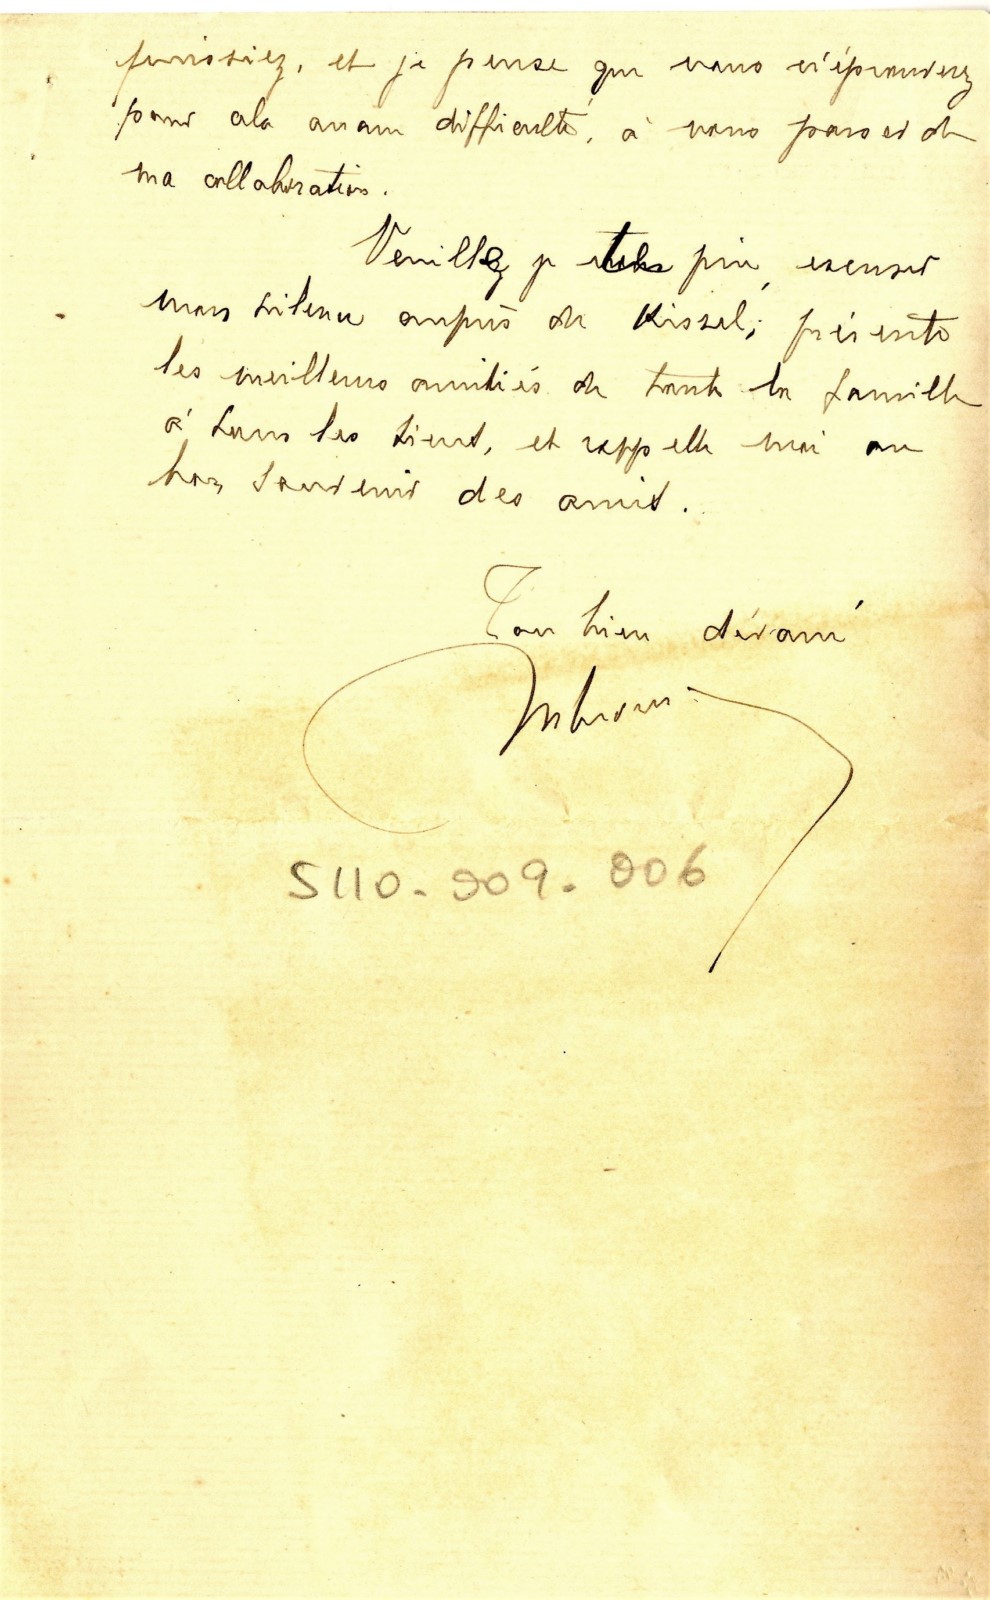 finissiez, et je pense que vous n'éprouverez
pour cela aucune difficulté, à vous passer de
ma collaboration.
Veuillez je te prie, excuser
mon silence auprès de Kissel; présente
les meilleures amitiés de toute la famille
à tous les tiens, et rappelle moi au
bon souvenir des amis.
Ton bien dévoué
S110-909-006